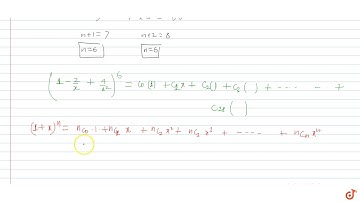 n+1=7 n+2=8
n=6 n=6
(1-2/x+4/x²)⁶ = C₀(1)+C₁x+C₂( )+C₃( )+----- - +
C₂₈( )
(1+x)ⁿ= nC₀·1+nC₁ x +nC₂x²+ nC₃x³ + ----- + nCₙxⁿ